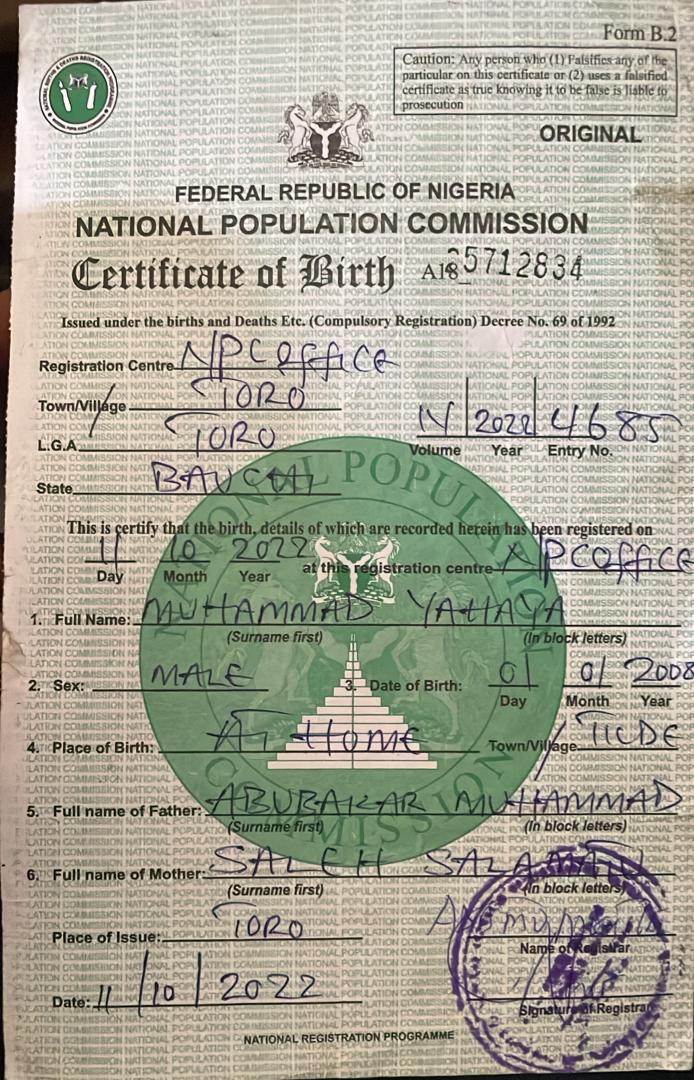 Form B.2
Caution: Any person who (1) Falsifies any of the
particular on this certificate or (2) uses a falsified
certificate as true knowing it to be false is liable to
prosecution
ORIGINAL
FEDERAL REPUBLIC OF NIGERIA
NATIONAL POPULATION COMMISSION
Certificate of Birth A18 5712834
Issued under the births and Deaths Etc. (Compulsory Registration) Decree No. 69 of 1992
Registration Centre NPC OFFICE
Town/Village TORO
L.G.A TORO
IV 2022 4685
Volume Year Entry No.
State BAUCHI
This is certify that the birth, details of which are recorded herein has been registered on
11 10 2022 at this registration centre NPC OFFICE
Day Month Year
1. Full Name: MUHAMMAD YAHAYA
(Surname first) (In block letters)
2. Sex: MALE 3. Date of Birth: 01 01 2008
Day Month Year
4. Place of Birth: AT HOME Town/Village TILDE
5. Full name of Father: ABUBAKAR MUHAMMAD
(Surname first) (In block letters)
6. Full name of Mother: SALEH SALAMATU
(Surname first) (In block letters)
Place of Issue: TORO
Name of Registrar
Date: 11/10/2022
Signature of Registrar
NATIONAL REGISTRATION PROGRAMME